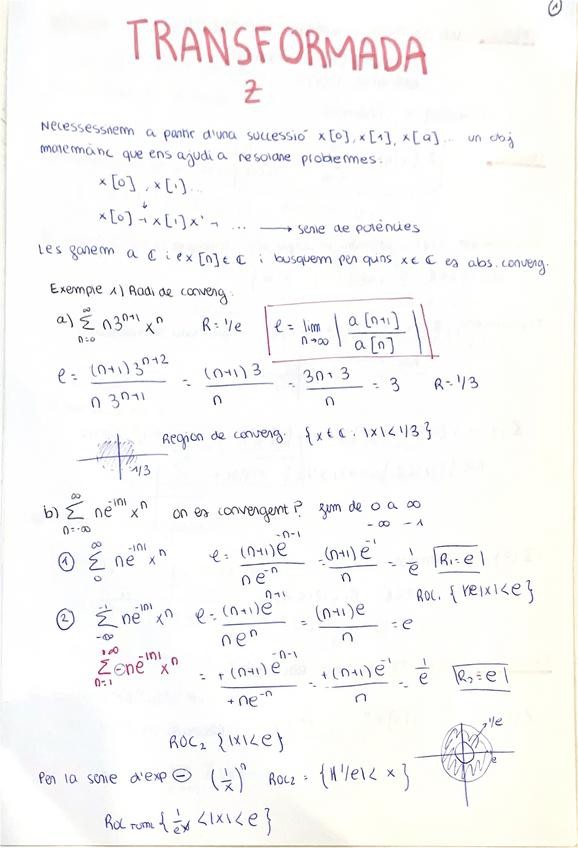 1
TRANSFORMADA
Z
a partir d'una successió x[0], x[1], x[a]... un obj
que ens ajudi a resoldre problemes.
x[0], x[1]...
x[0] + x[1]x¹ + ... → serie de potències
Les farem a ℂ i ex x[n] ∈ ℂ i busquem per quins x ∈ ℂ es abs. converg.
Exemple 1) Radi de converg.
a) ∑_{n=0}^{∞} n3^{n+1} x^n R = 1/ℓ ℓ = lim_{n→∞} | a[n+1] / a[n] |
ℓ = (n+1)3^{n+2} / n 3^{n+1} = (n+1)3 / n = 3n+3 / n = 3 R = 1/3
1/3 Region de converg. {x ∈ ℂ : |x| < 1/3}
b) ∑_{n=-∞}^{∞} ne^{-|n|} x^n on es convergent? fem de 0 a ∞
-∞ -1
① ∑_{0}^{∞} ne^{-|n|} x^n ℓ = (n+1)e^{-n-1} / ne^{-n} = (n+1)e^{-1} / n = 1/e R₁ = e
ROC₁ { |x| < e}
② ∑_{-∞}^{-1} ne^{-|n|} x^n ℓ = (n+1)e^{n+1} / ne^{n} = (n+1)e / n = e
∑_{n=1}^{+∞} -ne^{-|n|} x^n = +(n+1)e^{-n-1} / +ne^{-n} = +(n+1)e^{-1} / n = 1/e R₂ = e
ROC₂ {|x| < e}
1/e
e
Per la serie d'exp ⊖ (1/x)^n ROC₂ = { 1/e| < x}
{1/e < |x| < e}